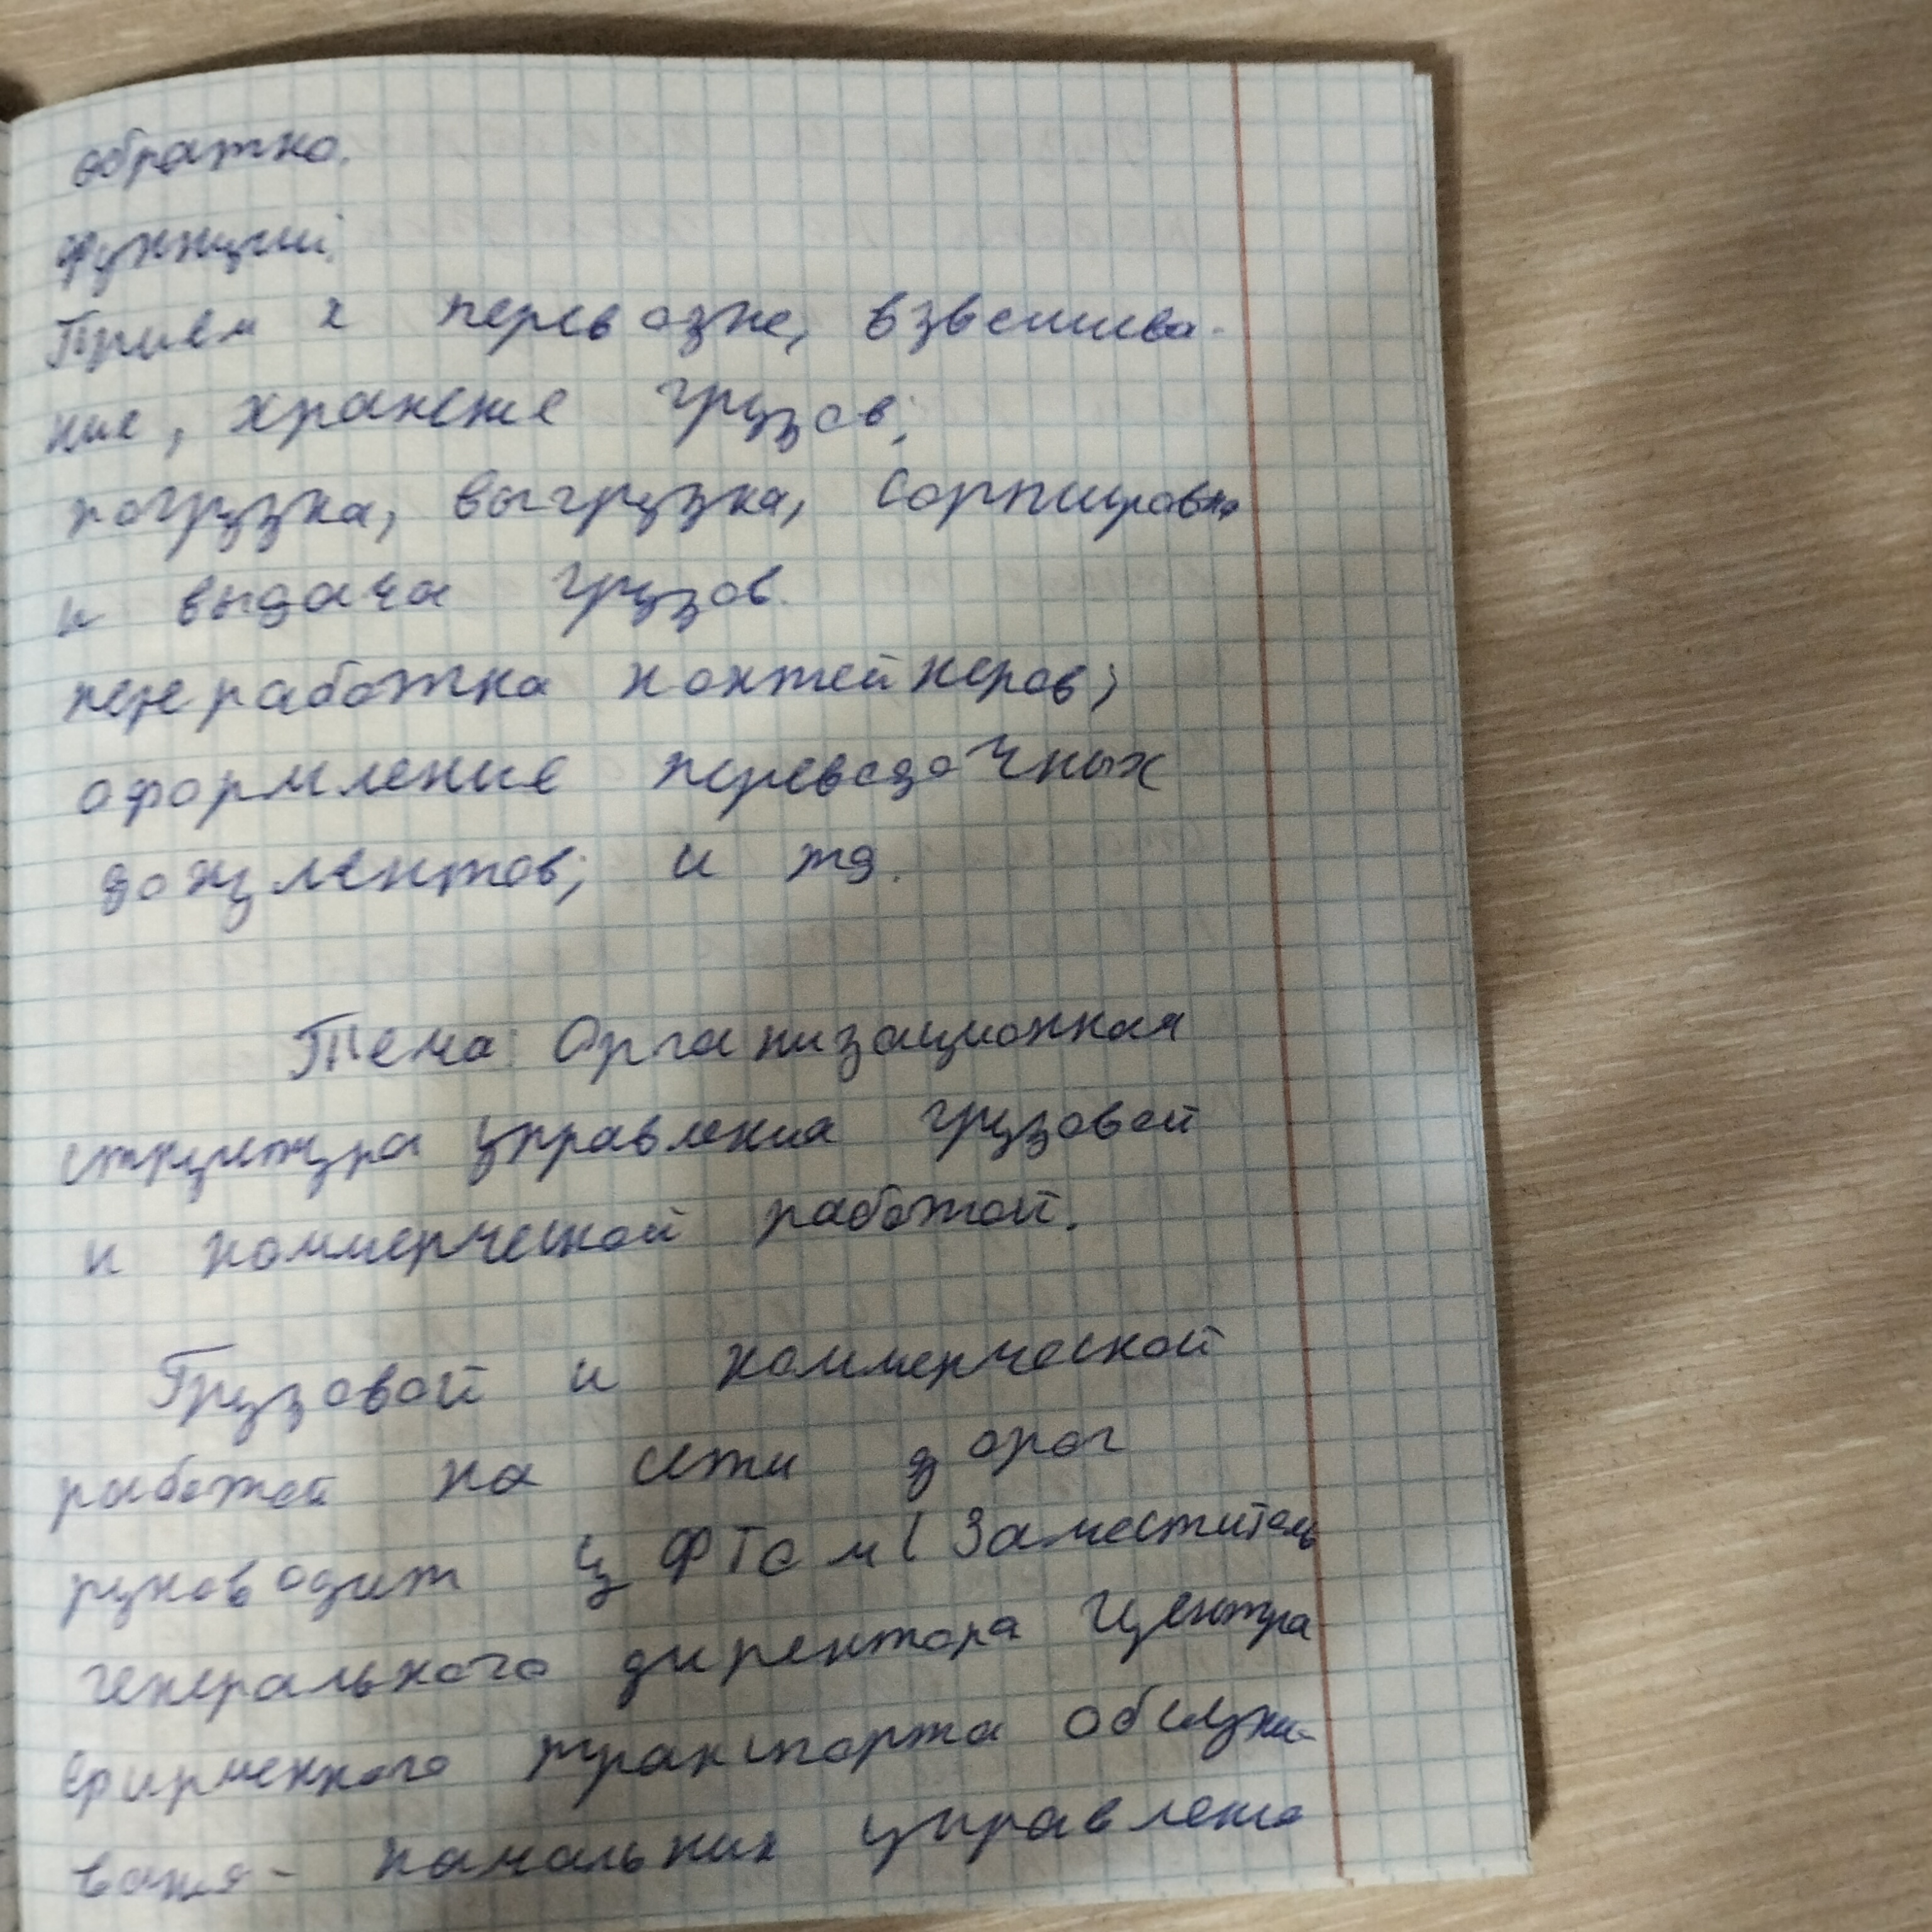 обратно.
функций:
Прием к перевозке, взвешива-
ние, хранение грузов;
погрузка, выгрузка, сортировка
и выдача грузов.
переработка контейнеров;
оформление перевозочных
документов; и тд.
Тема: Организационная
структура управления грузовой
и коммерческой работой.
Грузовой и коммерческой
работой на сети дорог
руководит ЦФТО м (Заместитель
генерального директора Центра
фирменного транспорта обслужи-
вания - начальник управления